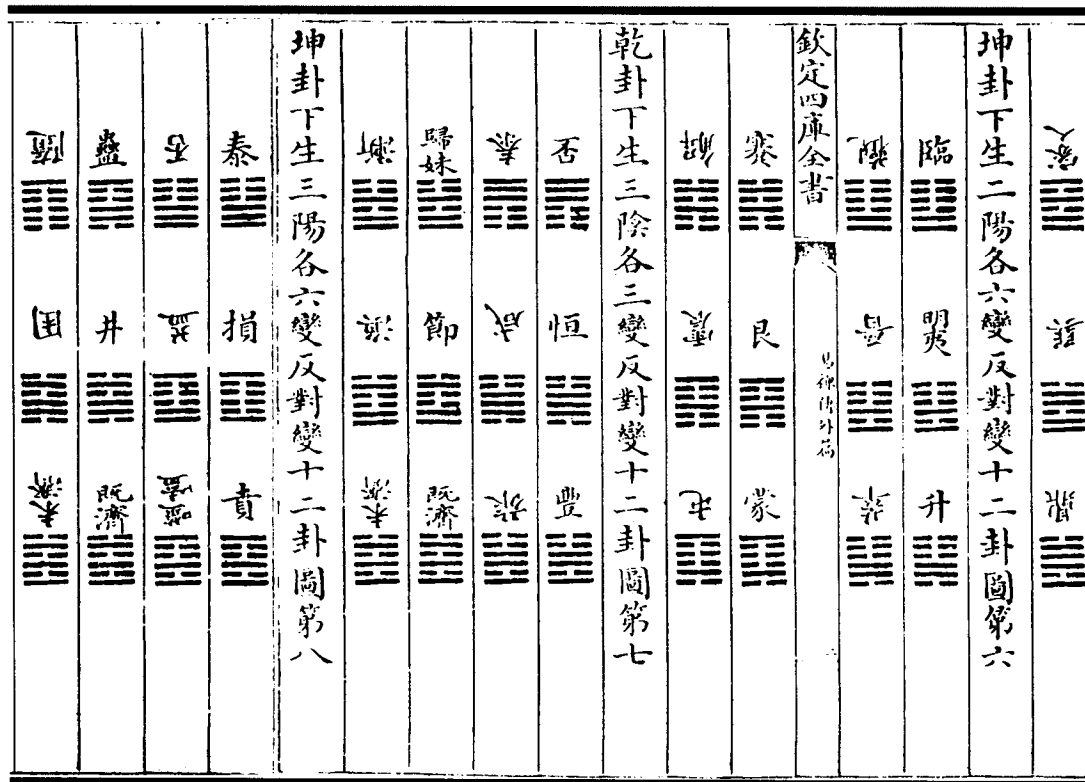 家人 巽 鼎
坤卦下生二陽各六變反對變十二卦圖第六
臨 明夷 升
觀 晉 萃
欽定四庫全書 易裨傳外篇
蹇 艮 蒙
解 震 屯
乾卦下生三陰各三變反對變十二卦圖第七
否 恒 豐
泰 咸 旅
歸妹 節 既濟
漸 渙 未濟
坤卦下生三陽各六變反對變十二卦圖第八
泰 損 賁
否 益 噬嗑
蠱 井 既濟
隨 困 未濟